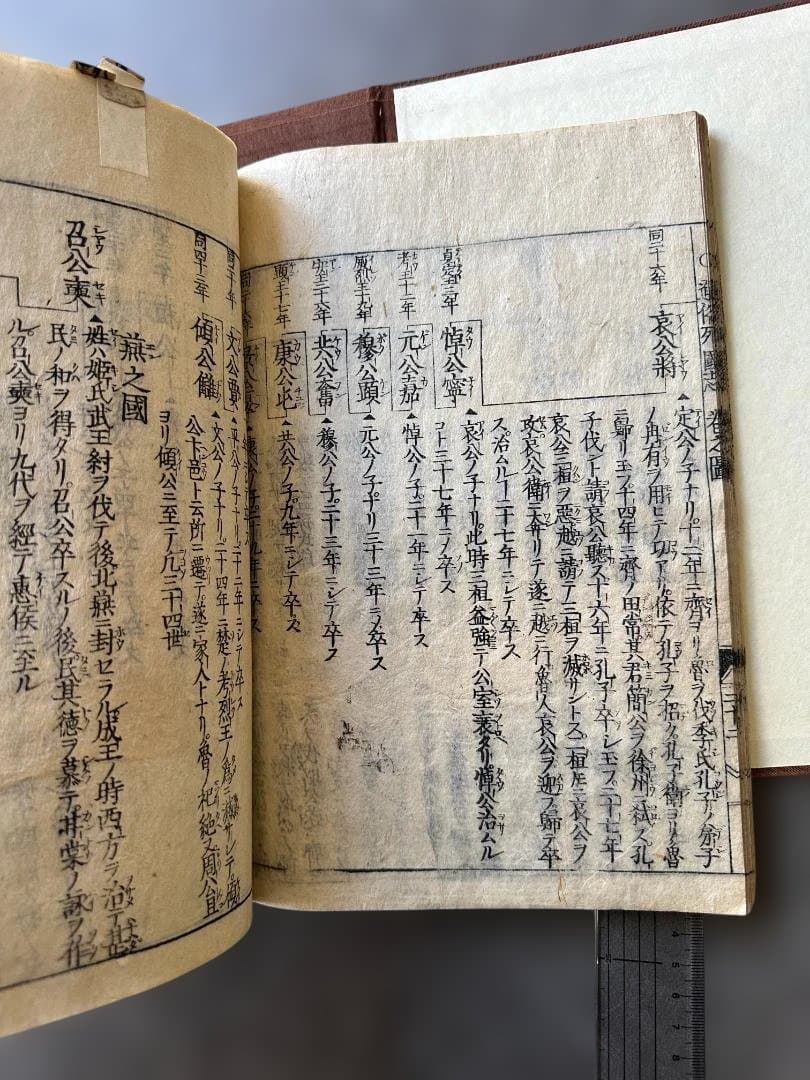 同二十六年
哀公將
▲定公ノ子ナリ十二年ニ齊ヨリ魯ヲ伐季氏孔子ノ弟子
ノ冉有ヲ用ヒテ依テ孔子ヲ招ク孔子衛ヨリ魯
ニ歸リ玉フ十四年ニ齊ノ田常其君簡公ヲ徐州ニ弑ス孔
子伐ント請哀公聽ス十六年ニ孔子卒シ玉フ二十七年
哀公三桓ヲ惡越ニ請テ三桓ヲ滅サントス三桓反テ哀公ヲ
攻哀公衛ニ奔リテ遂ニ越ニ行魯人哀公ヲ迎フ歸テ卒
ス治ムルコト二十七年ニシテ卒ス
貞定王三年
悼公寧
▲哀公ノ子ナリ此時三桓益強テ公室衰タリ悼公治ムル
コト三十七年ニシテ卒ス
考王十二年
元公嘉
▲悼公ノ子二十一年ニシテ卒ス
威烈王十九年
穆公顯
▲元公ノ子ナリ三十三年ニシテ卒ス
安王二十六年
共公奮
▲穆公ノ子二十三年ニシテ卒ス
顯王十七年
康公屯
▲共公ノ子九年ニシテ卒ス
文公賈
▲平公ノ子ナリ二十三年ニシテ卒ス
同四十三年
傾公讎
▲文公ノ子ナリ二十四年ニ楚ノ考烈王ノ爲ニ滅サレテ傾
公卞邑ト云所ニ遷テ遂ニ家人トナリ魯ノ祀絶ヌ周公旦
ヨリ傾公ニ至テ凡三十四世
燕之國
召公奭
▲姓ハ姬氏武王紂ヲ伐テ後北燕ニ封セラル成王ノ時西方ヲ治テ甚
民ノ和ヲ得タリ召公卒スルノ後民其德ヲ慕テ甘棠ノ詠ヲ作
ル召公奭ヨリ九代ヲ經テ惠侯ニ至ル
4
5
6
7
8